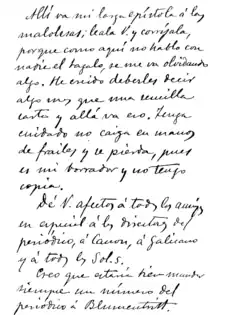 Allí va mi larga epístola á las
malolesas; leala V. y corríjala,
porque como aquí no hablo con
nadie el tagalo, se me va olvidando
algo. He creido deberles decir
algo mas que una sencilla
carta y allá va eso. Tenga
cuidado no caiga en manos
de frailes y se pierda, pues
es mi borrador y no tengo
copia.
Dé V. afectos á todos los amigos
en especial á los directores del
periódico, á Canon, á Galicano
y á todos los Sol.s.
Creo que estarán bien mandar
siempre un número del
periódico á Blumentritt.